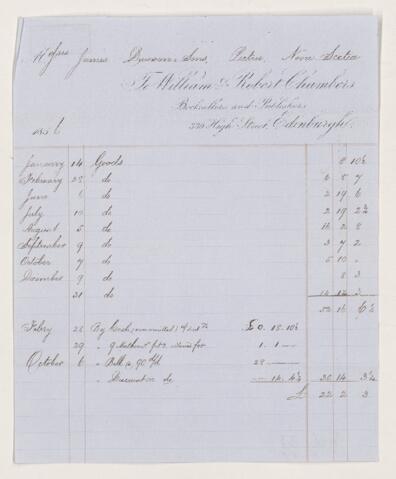 Messrs James Dawson & Sons, Pictou, Nova Scotia
To William & Robert Chambers
Booksellers and Publishers
339 High Street, Edinburgh
1856
January 14 Goods 8 10½
February 23 do 6 8 7
June 6 do 2 19 6
July 10 do 2 19 2½
August 5 do 2 8
September 9 do 3 7 2
October 7 do 5 10
December 9 do 8 3
31 do
52 16 6½
Febry 28 By Cash £0. 18. 10½
29 1. 1 —
October 6 Bill @ 90 d/d 28 —
Discount on do
£ 22 2 3